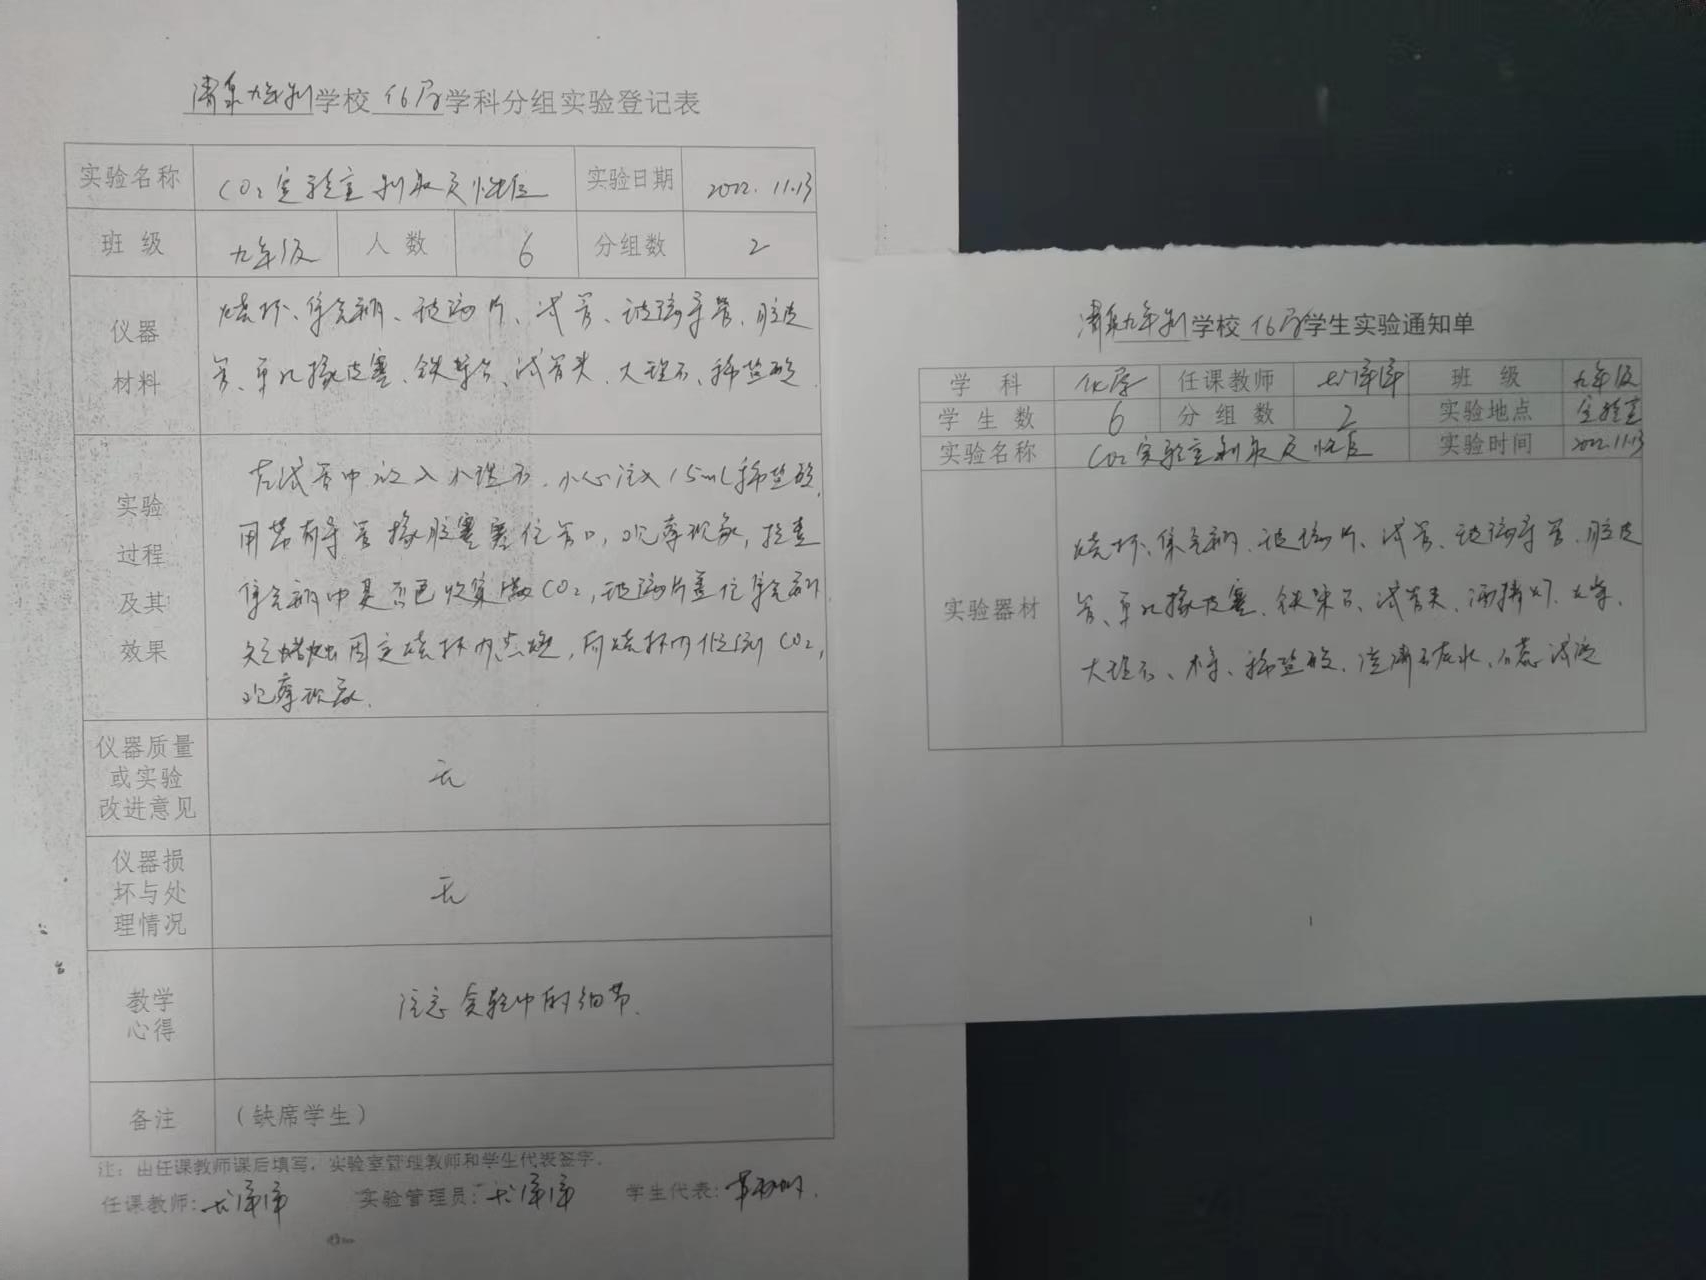 清泉九年制学校 化学 学科分组实验登记表
实验名称 CO₂实验室制取及性质 实验日期 2022.11.13
班 级 九年级 人 数 6 分组数 2
仪器材料 烧杯、集气瓶、玻璃片、试管、玻璃导管、胶皮
管、单孔橡皮塞、铁架台、试管夹、大理石、稀盐酸
实验过程及其效果 在试管中放入大理石,小心注入15mL稀盐酸,
用带有导管橡胶塞塞住管口,观察现象,检查
集气瓶中是否已收集满CO₂,玻璃片盖住集气瓶
短蜡烛固定烧杯内点燃,向烧杯内倾倒CO₂,
观察现象.
仪器质量或实验改进意见 无
仪器损坏与处理情况 无
教学心得 注意实验中的细节.
备注 (缺席学生)
注:由任课教师课后填写,实验室管理教师和学生代表签字.
任课教师: 实验管理员: 学生代表:
清泉九年制学校 化学 学生实验通知单
学 科 化学 任课教师 班 级 九年级
学生数 6 分组数 2 实验地点 实验室
实验名称 CO₂实验室制取及性质 实验时间 2022.11.13
实验器材 烧杯、集气瓶、玻璃片、试管、玻璃导管、胶皮
管、单孔橡皮塞、铁架台、试管夹、酒精灯、
大理石、木条、稀盐酸、澄清石灰水、石蕊试液